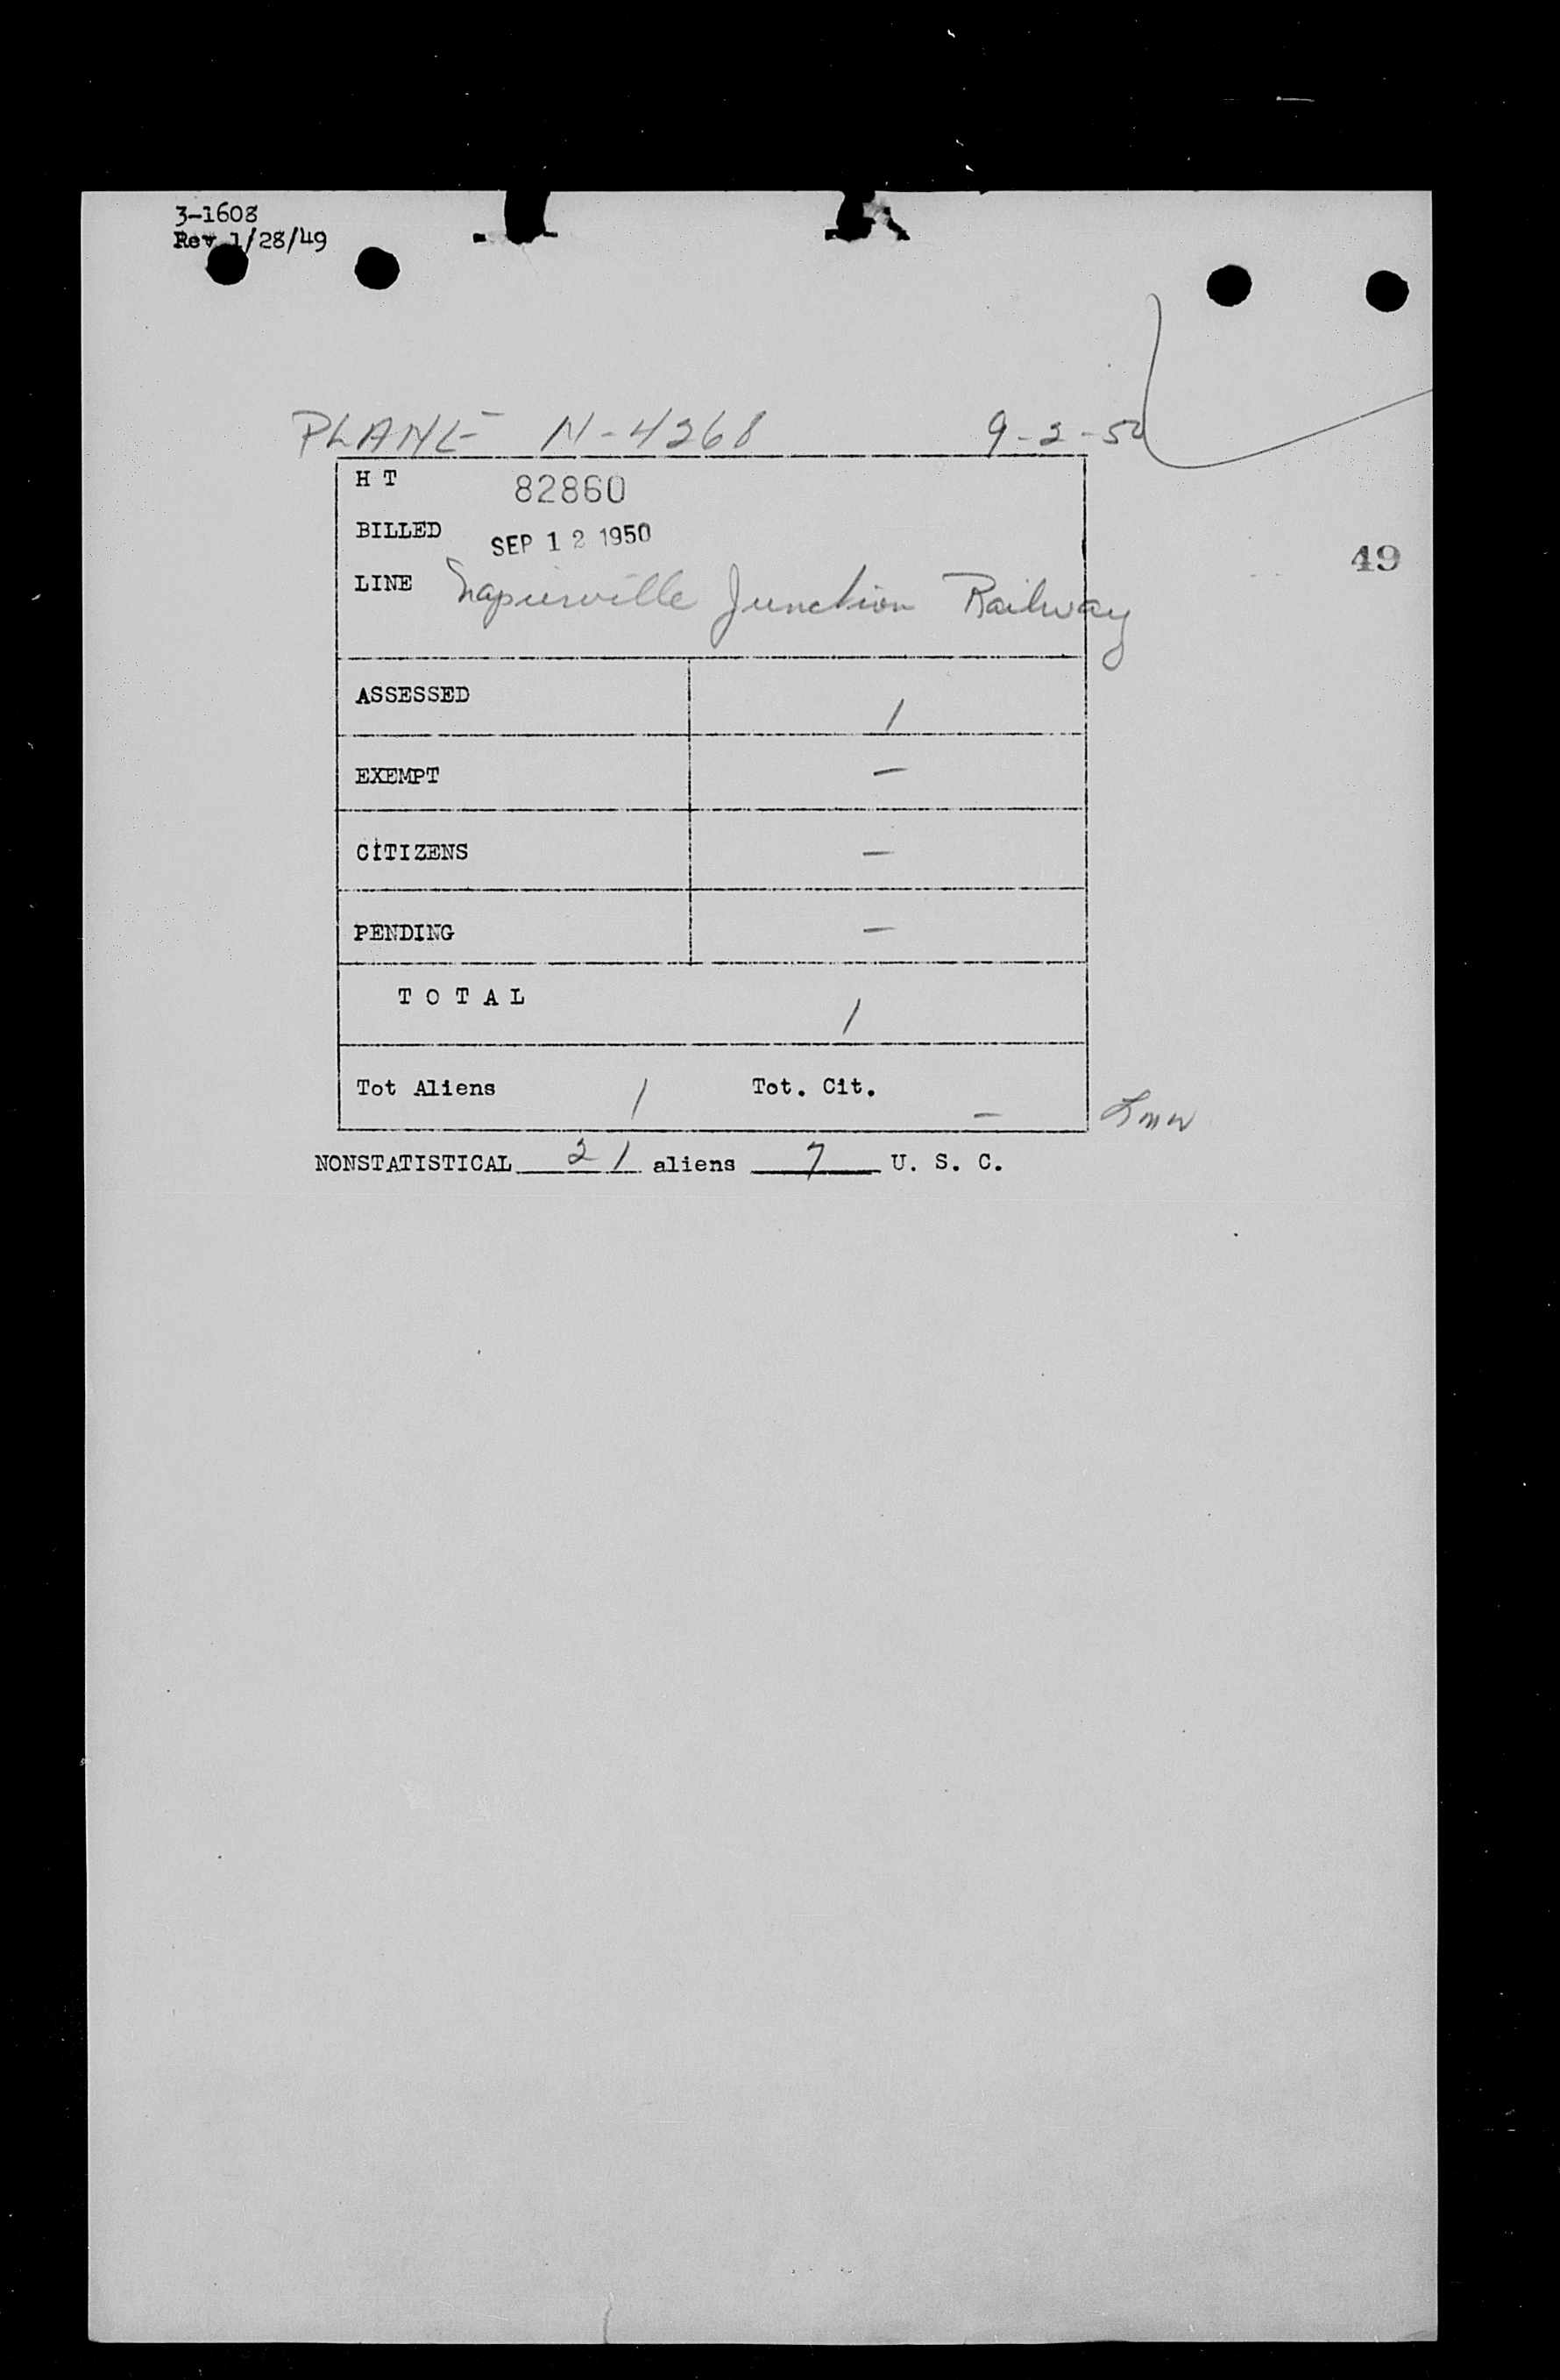 3-1608
Rev 1/28/49
PLANE N-4268 9-2-50
H T 82860
BILLED SEP 12 1950
LINE Napierville Junction Railway
49
ASSESSED 1
EXEMPT –
CITIZENS –
PENDING –
T O T A L 1
Tot Aliens 1 Tot. Cit. –
NONSTATISTICAL 21 aliens 7 U. S. C.